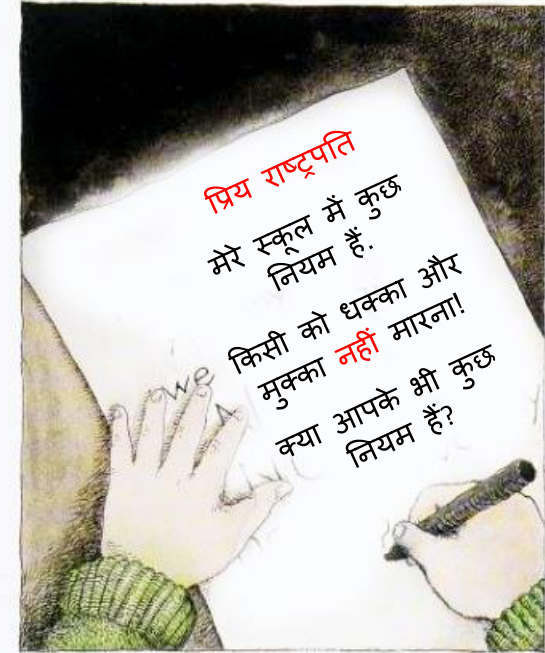 प्रिय राष्ट्रपति
मेरे स्कूल में कुछ
नियम हैं.
किसी को धक्का और
मुक्का नहीं मारना!
क्या आपके भी कुछ
नियम हैं?
we